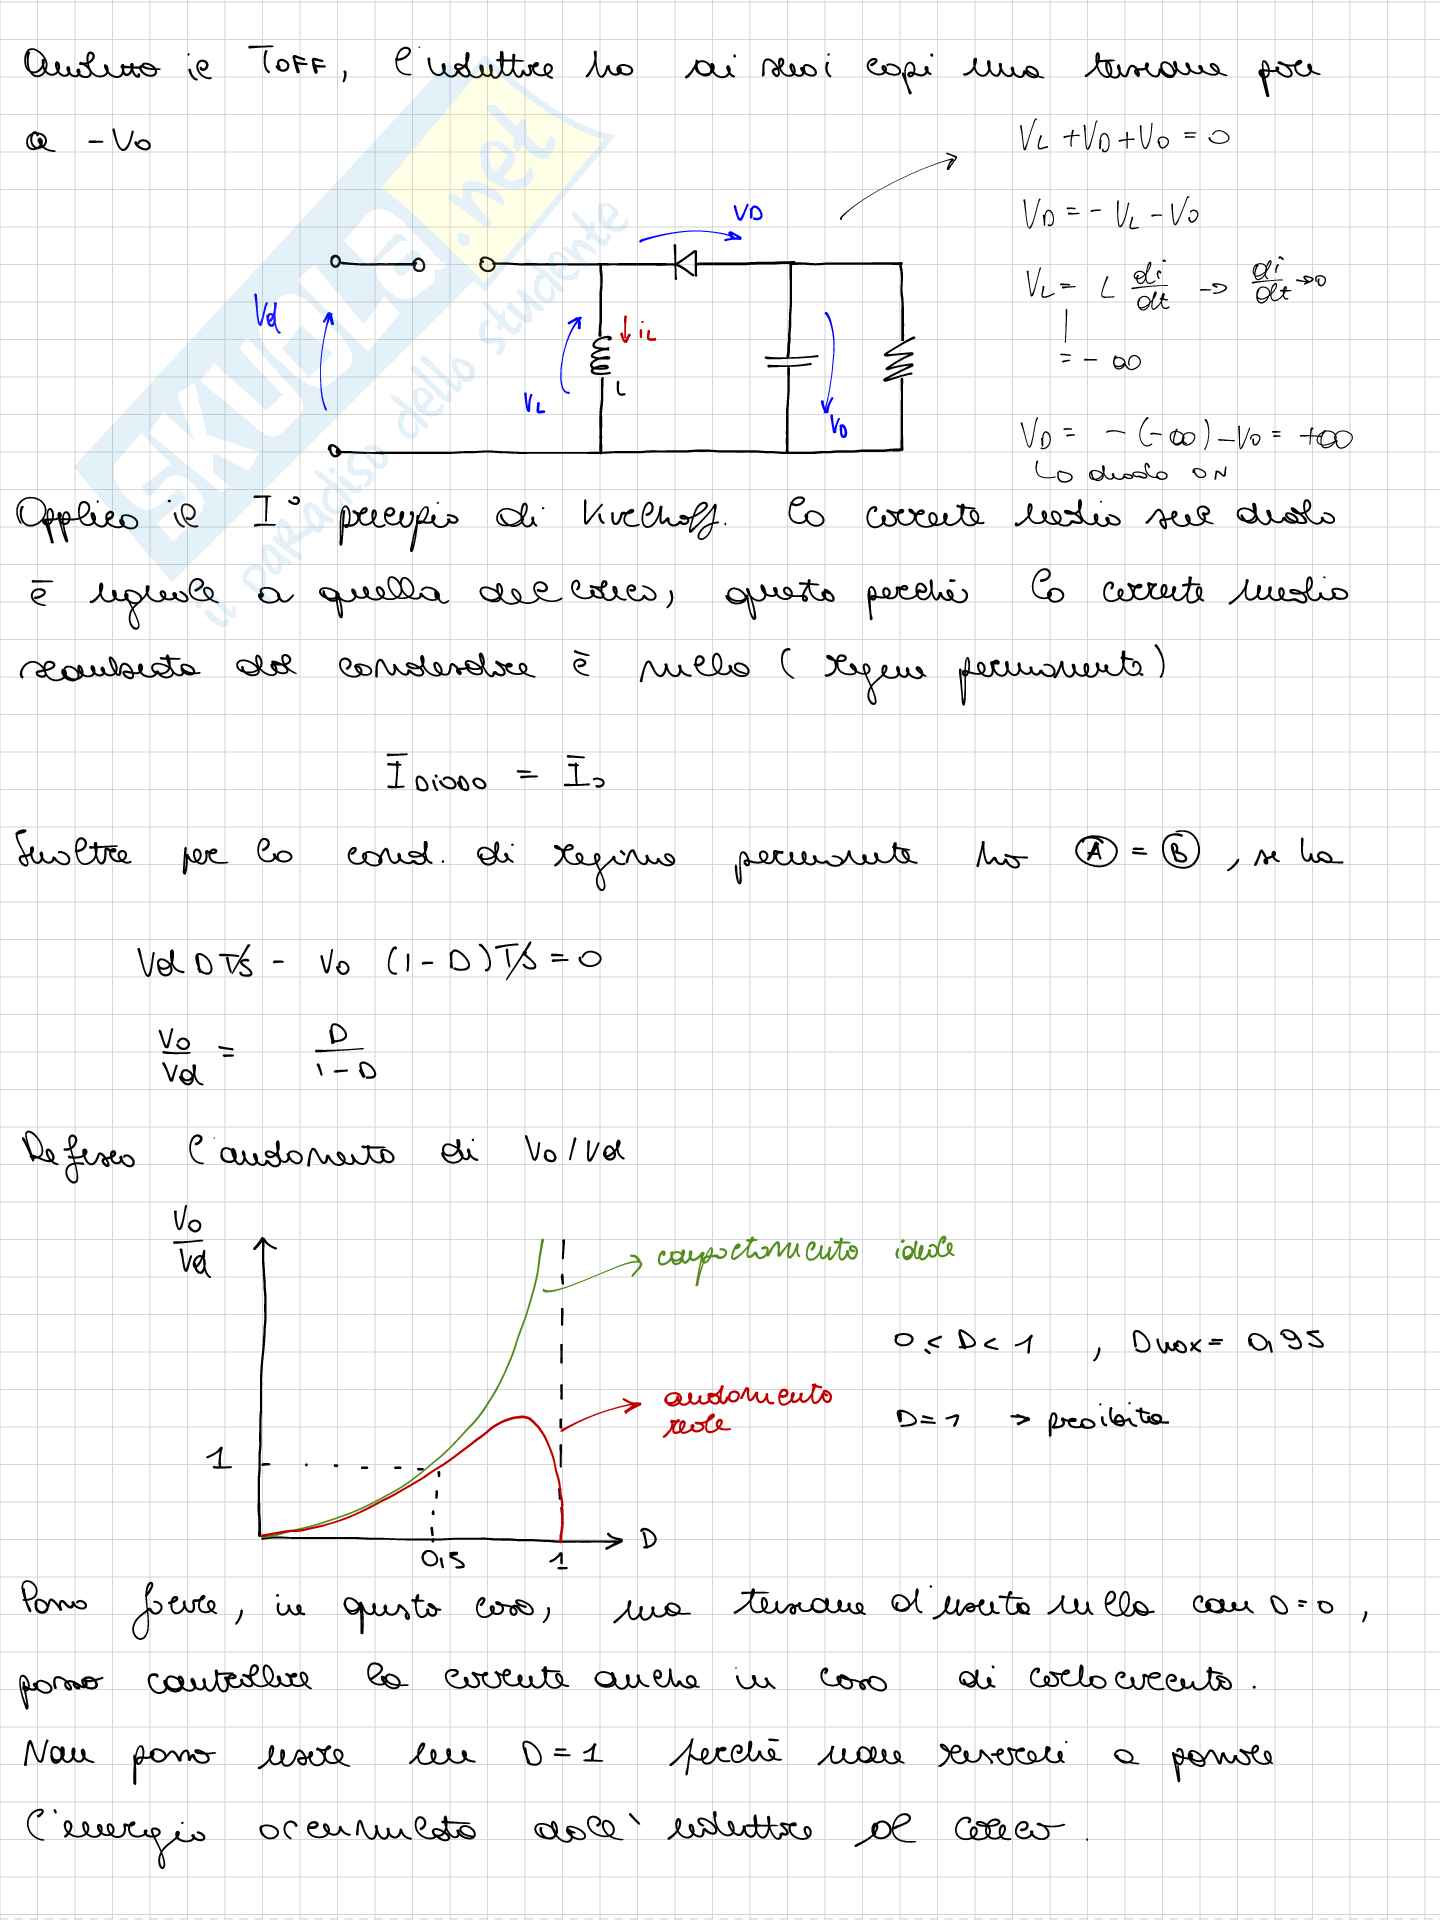 Durante il TOFF, l'induttore ha ai suoi capi una tensione pari
a -Vo
VL + VD + VO = 0
VD = - VL - VO
VL = L di/dt -> di/dt -> 0
= - ∞
VD = - (-∞) - VO = +∞
↳ diodo ON
VD
Vd
VL
iL
L
VO
SKUOLA.net
il paradiso dello studente
Applico il I° principio di Kirchhoff. La corrente media sul diodo
è uguale a quella del carico, questo perché la corrente media
scambiata dal condensatore è nulla (regime permanente)
I̅DIODO = I̅o
Inoltre per la cond. di regime permanente ho Ⓐ = Ⓑ, se ha
Vd D Ts - Vo (1-D) Ts = 0
Vo/Vd = D/(1-D)
l'andamento di Vo/Vd
Vo/Vd
comportamento ideale
0 ≤ D < 1 , Dmax = 0,95
andamento
reale
D = 1 -> proibita
1
0,5
1
D
Posso fornire, in questo caso, una tensione d'uscita nulla con D=0,
posso controllare la corrente anche in caso di cortocircuito.
Non posso usare un D = 1 perché non riuscirei a passare
l'energia accumulata dall'induttore al carico.